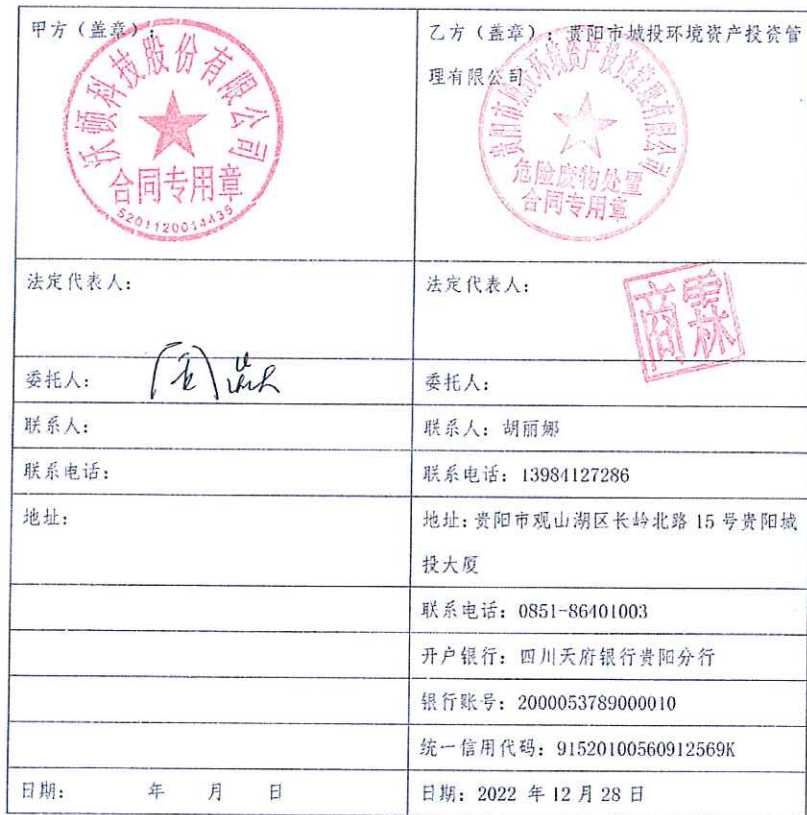 甲方（盖章）：
沃顿科技股份有限公司
合同专用章
5201120014435
乙方（盖章）：贵阳市城投环境资产投资管
理有限公司
贵阳市城投环境资产投资管理有限公司
危险废物处置
合同专用章
法定代表人：
法定代表人：
商霖
委托人：
委托人：
联系人：
联系人：胡丽娜
联系电话：
联系电话：13984127286
地址：
地址：贵阳市观山湖区长岭北路 15 号贵阳城
投大厦
联系电话：0851-86401003
开户银行：四川天府银行贵阳分行
银行账号：2000053789000010
统一信用代码：91520100560912569K
日期： 年 月 日
日期：2022 年 12 月 28 日